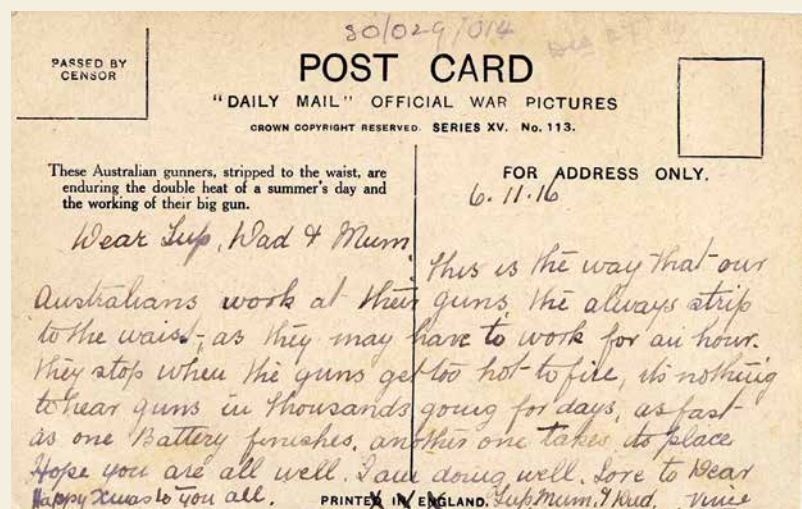 80/029/014
PASSED BY
CENSOR
POST CARD
"DAILY MAIL" OFFICIAL WAR PICTURES
CROWN COPYRIGHT RESERVED. SERIES XV. No. 113.
These Australian gunners, stripped to the waist, are
enduring the double heat of a summer's day and
the working of their big gun.
FOR ADDRESS ONLY.
6.11.16
Dear Lup, Dad & Mum,
This is the way that our
Australians work at their guns, the always strip
to the waist, as they may have to work for an hour.
they stop when the guns get too hot to fire, its nothing
to hear guns in thousands going for days, as fast
as one Battery finishes, another one takes its place
Hope you are all well. I am doing well. Love to Dear
Happy Xmas to you all. PRINTED IN ENGLAND. Lup, Mum, & Dad. Vince
X X X